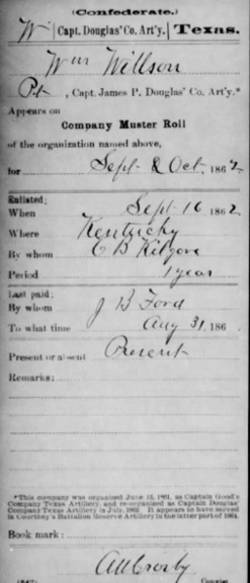 (Confederate.)
W | Capt. Douglas' Co. Art'y. | Texas.
Wm Willson
Pt, Capt. James P. Douglas' Co. Art'y.*
Appears on
Company Muster Roll
of the organization named above,
for Sept & Oct, 1862
Enlisted:
When Sept 16 1862
Where Kentucky
By whom C B Kilgore
Period 1 year
Last paid:
By whom J B Ford
To what time Aug 31, 186
Present or absent Present
Remarks:
*This company was organized June 13, 1861, as Captain Good's
Company Texas Artillery, and re-organized as Captain Douglas'
Company Texas Artillery in July, 1862. It appears to have served
in Courtney's Battalion Reserve Artillery in the latter part of 1864.
Book mark:
AU Crosby
(642) Copyist.